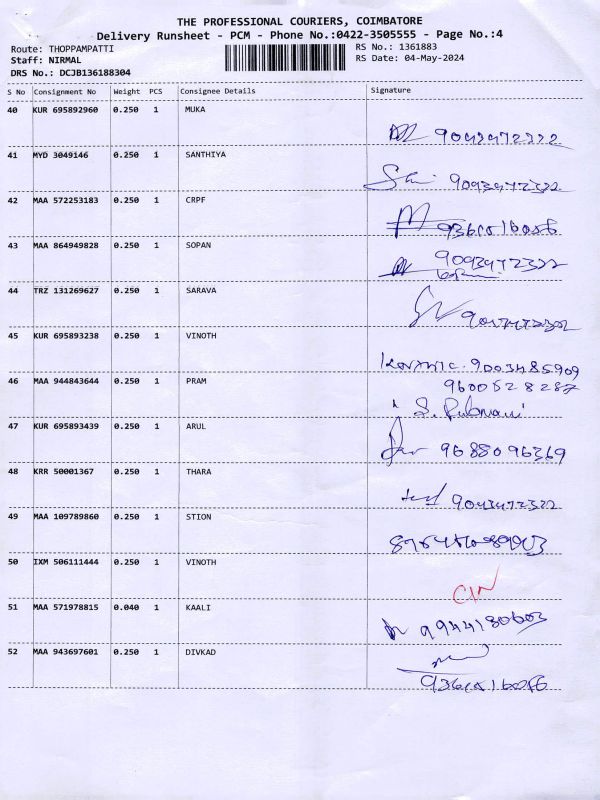 THE PROFESSIONAL COURIERS, COIMBATORE
Delivery Runsheet - PCM - Phone No.:0422-3505555 - Page No.:4
Route: THOPPAMPATTI RS No.: 1361883
Staff: NIRMAL RS Date: 04-May-2024
DRS No.: DCJB136188304
S No Consignment No Weight PCS Consignee Details Signature
40 KUR 695892960 0.250 1 MUKA
9043472322
41 MYD 3049146 0.250 1 SANTHIYA
9093472322
42 MAA 572253183 0.250 1 CRPF
43 MAA 864949828 0.250 1 SOPAN
9093472322
44 TRZ 131269627 0.250 1 SARAVA
45 KUR 695893238 0.250 1 VINOTH
9003485909
46 MAA 944843644 0.250 1 PRAM
9600528287
47 KUR 695893439 0.250 1 ARUL
9688096369
48 KRR 50001367 0.250 1 THARA
9043472322
49 MAA 109789860 0.250 1 STION
50 IXM 506111444 0.250 1 VINOTH
51 MAA 571978815 0.040 1 KAALI
9944180603
52 MAA 943697601 0.250 1 DIVKAD